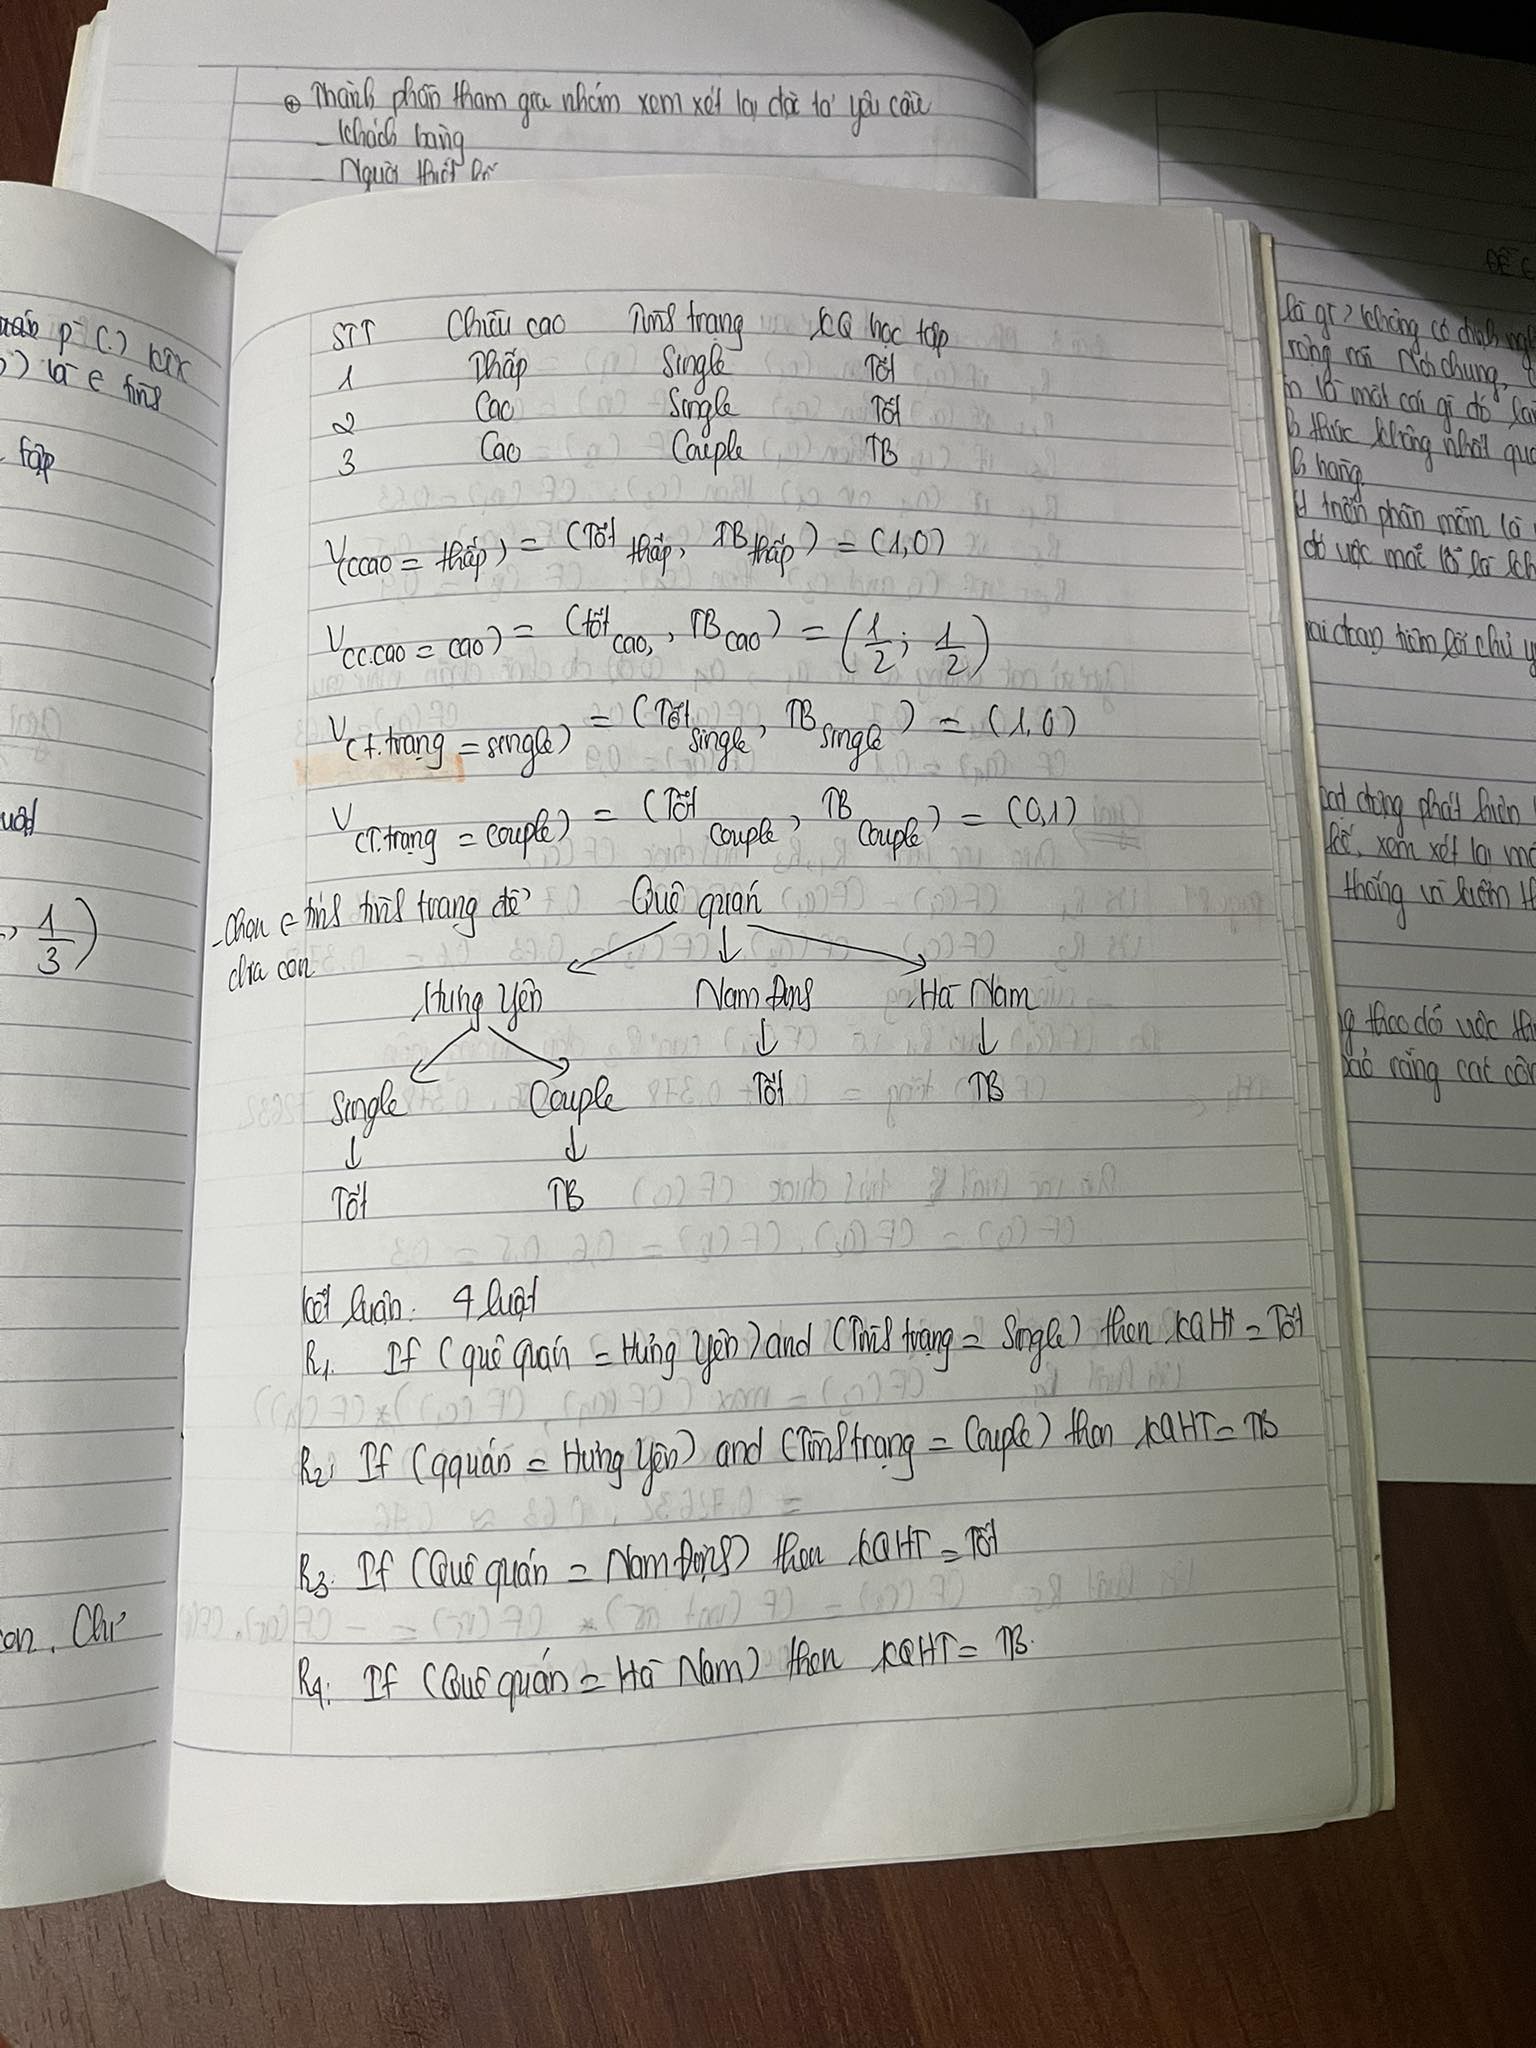 ⊕ Thành phần tham gia nhóm xem xét lại đặc tả yêu cầu
- Khách hàng
- Người thiết kế
STT Chiều cao Tình trạng KQ học tập
1 Thấp Single Tốt
2 Cao Single Tốt
3 Cao Couple TB
V(Ccao = thấp) = (Tốt thấp, TB thấp) = (1,0)
V(C.cao = cao) = (tốt cao, TB cao) = (1/2; 1/2)
V(t.trạng = single) = (Tốt single, TB single) = (1,0)
V(T.trạng = couple) = (Tốt couple, TB couple) = (0,1)
- Chọn t tính tình trạng để
chia con
Quê quán
Hưng Yên Nam Định Hà Nam
Single Couple Tốt TB
Tốt TB
Kết luận: 4 luật
R1. If (quê quán = Hưng Yên) and (Tình trạng = Single) then KQHT = Tốt
R2: If (qquán = Hưng Yên) and (Tình trạng = Couple) then KQHT = TB
R3: If (Quê quán = Nam Định) then KQHT = Tốt
R4: If (Quê quán = Hà Nam) then KQHT = TB.
tập
1/3)
con. Chi
là gì? Không có định
rộng rãi. Nói chung,
là một cái gì đó
thức không nhất
hàng.
trần phần mềm là
đó việc mỗi lỗi là
giai đoạn tìm lỗi chủ
hoạt động phát hiện
kế, xem xét lại
thống vì luôn
theo đó việc
bảo rằng các